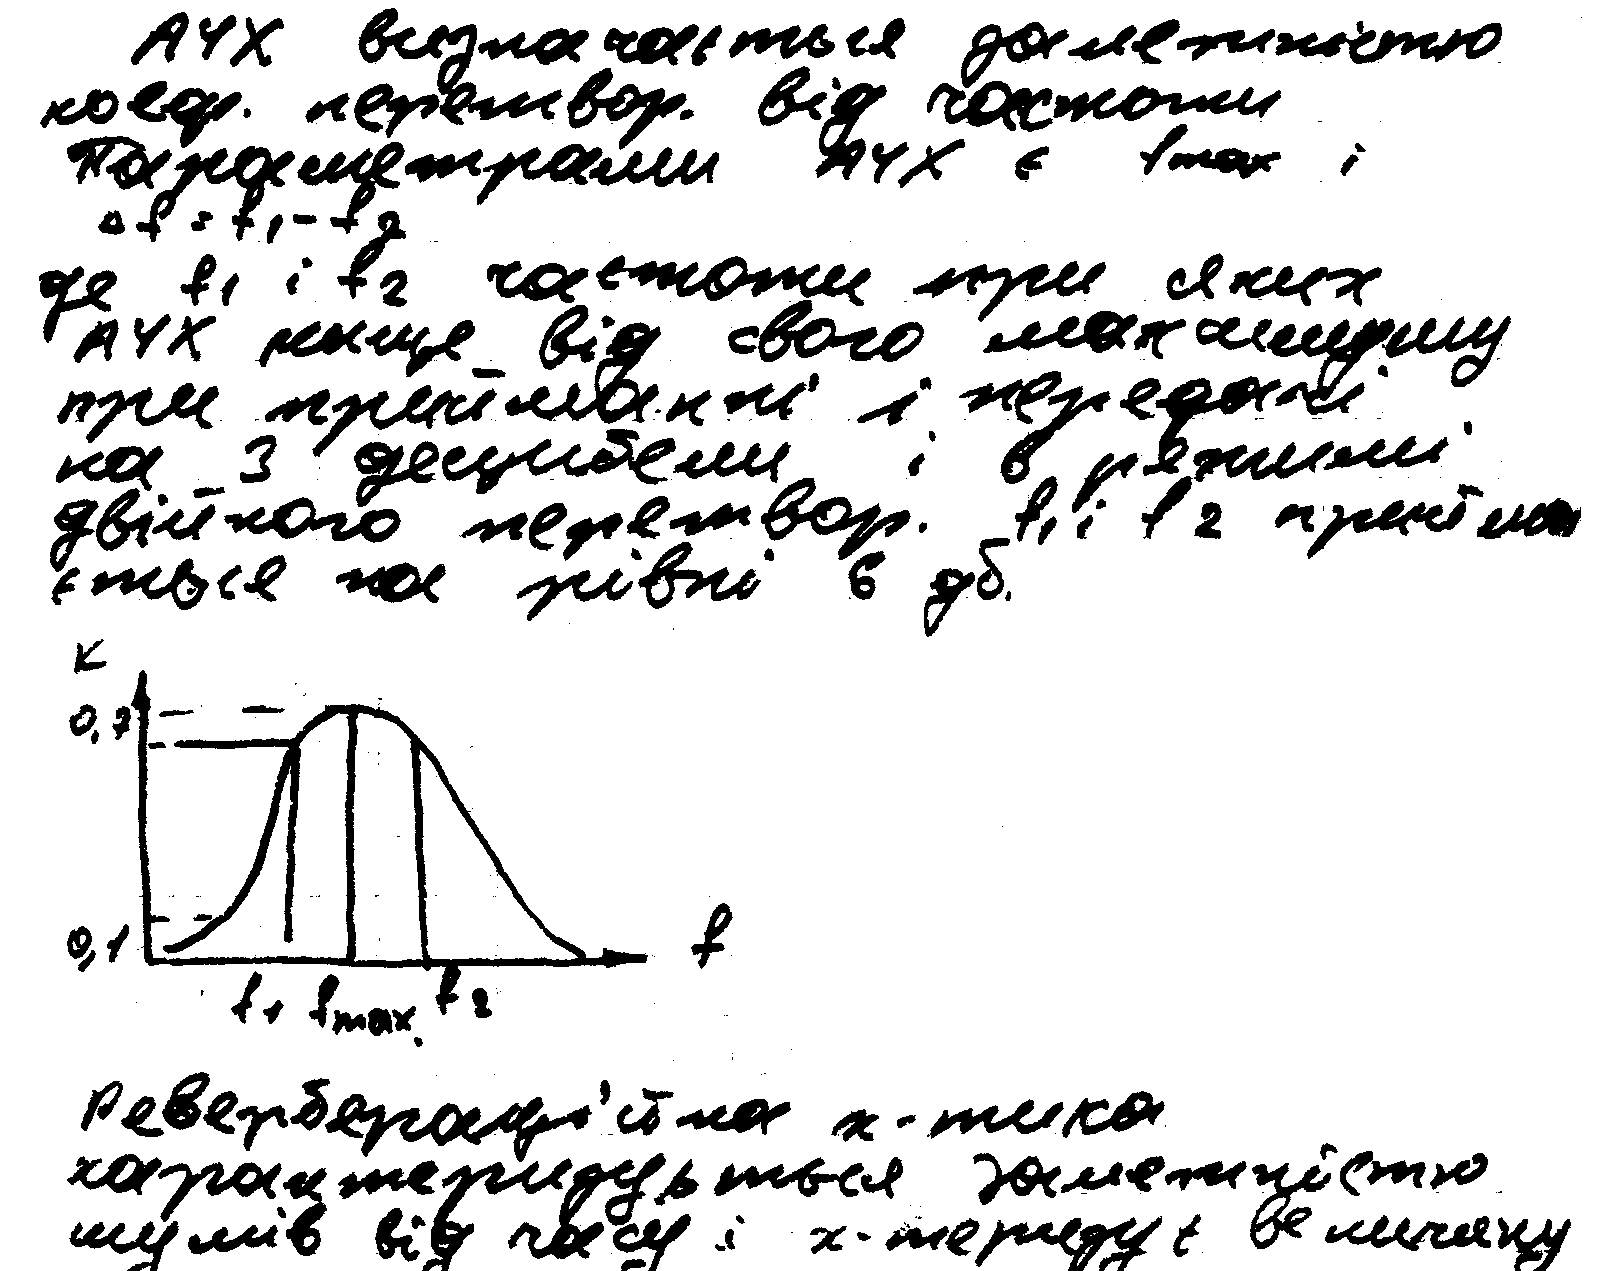 АЧХ визначається залежністю
коеф. перетвор. від частоти
Параметрами АЧХ є fmax і
△f = f1 - f2
де f1 і f2 частоти при яких
АЧХ нище від свого максимуму
при прийманні і передачі
на 3 децибели і в режимі
двійного перетвор. f1 і f2 прийма
ється на рівні 6 дб.
K
0,7
0,1
f
f1 fmax. f2
Реверберац'ійна х-тика
характеризується залежністю
шумів від часу і х-теризує величину